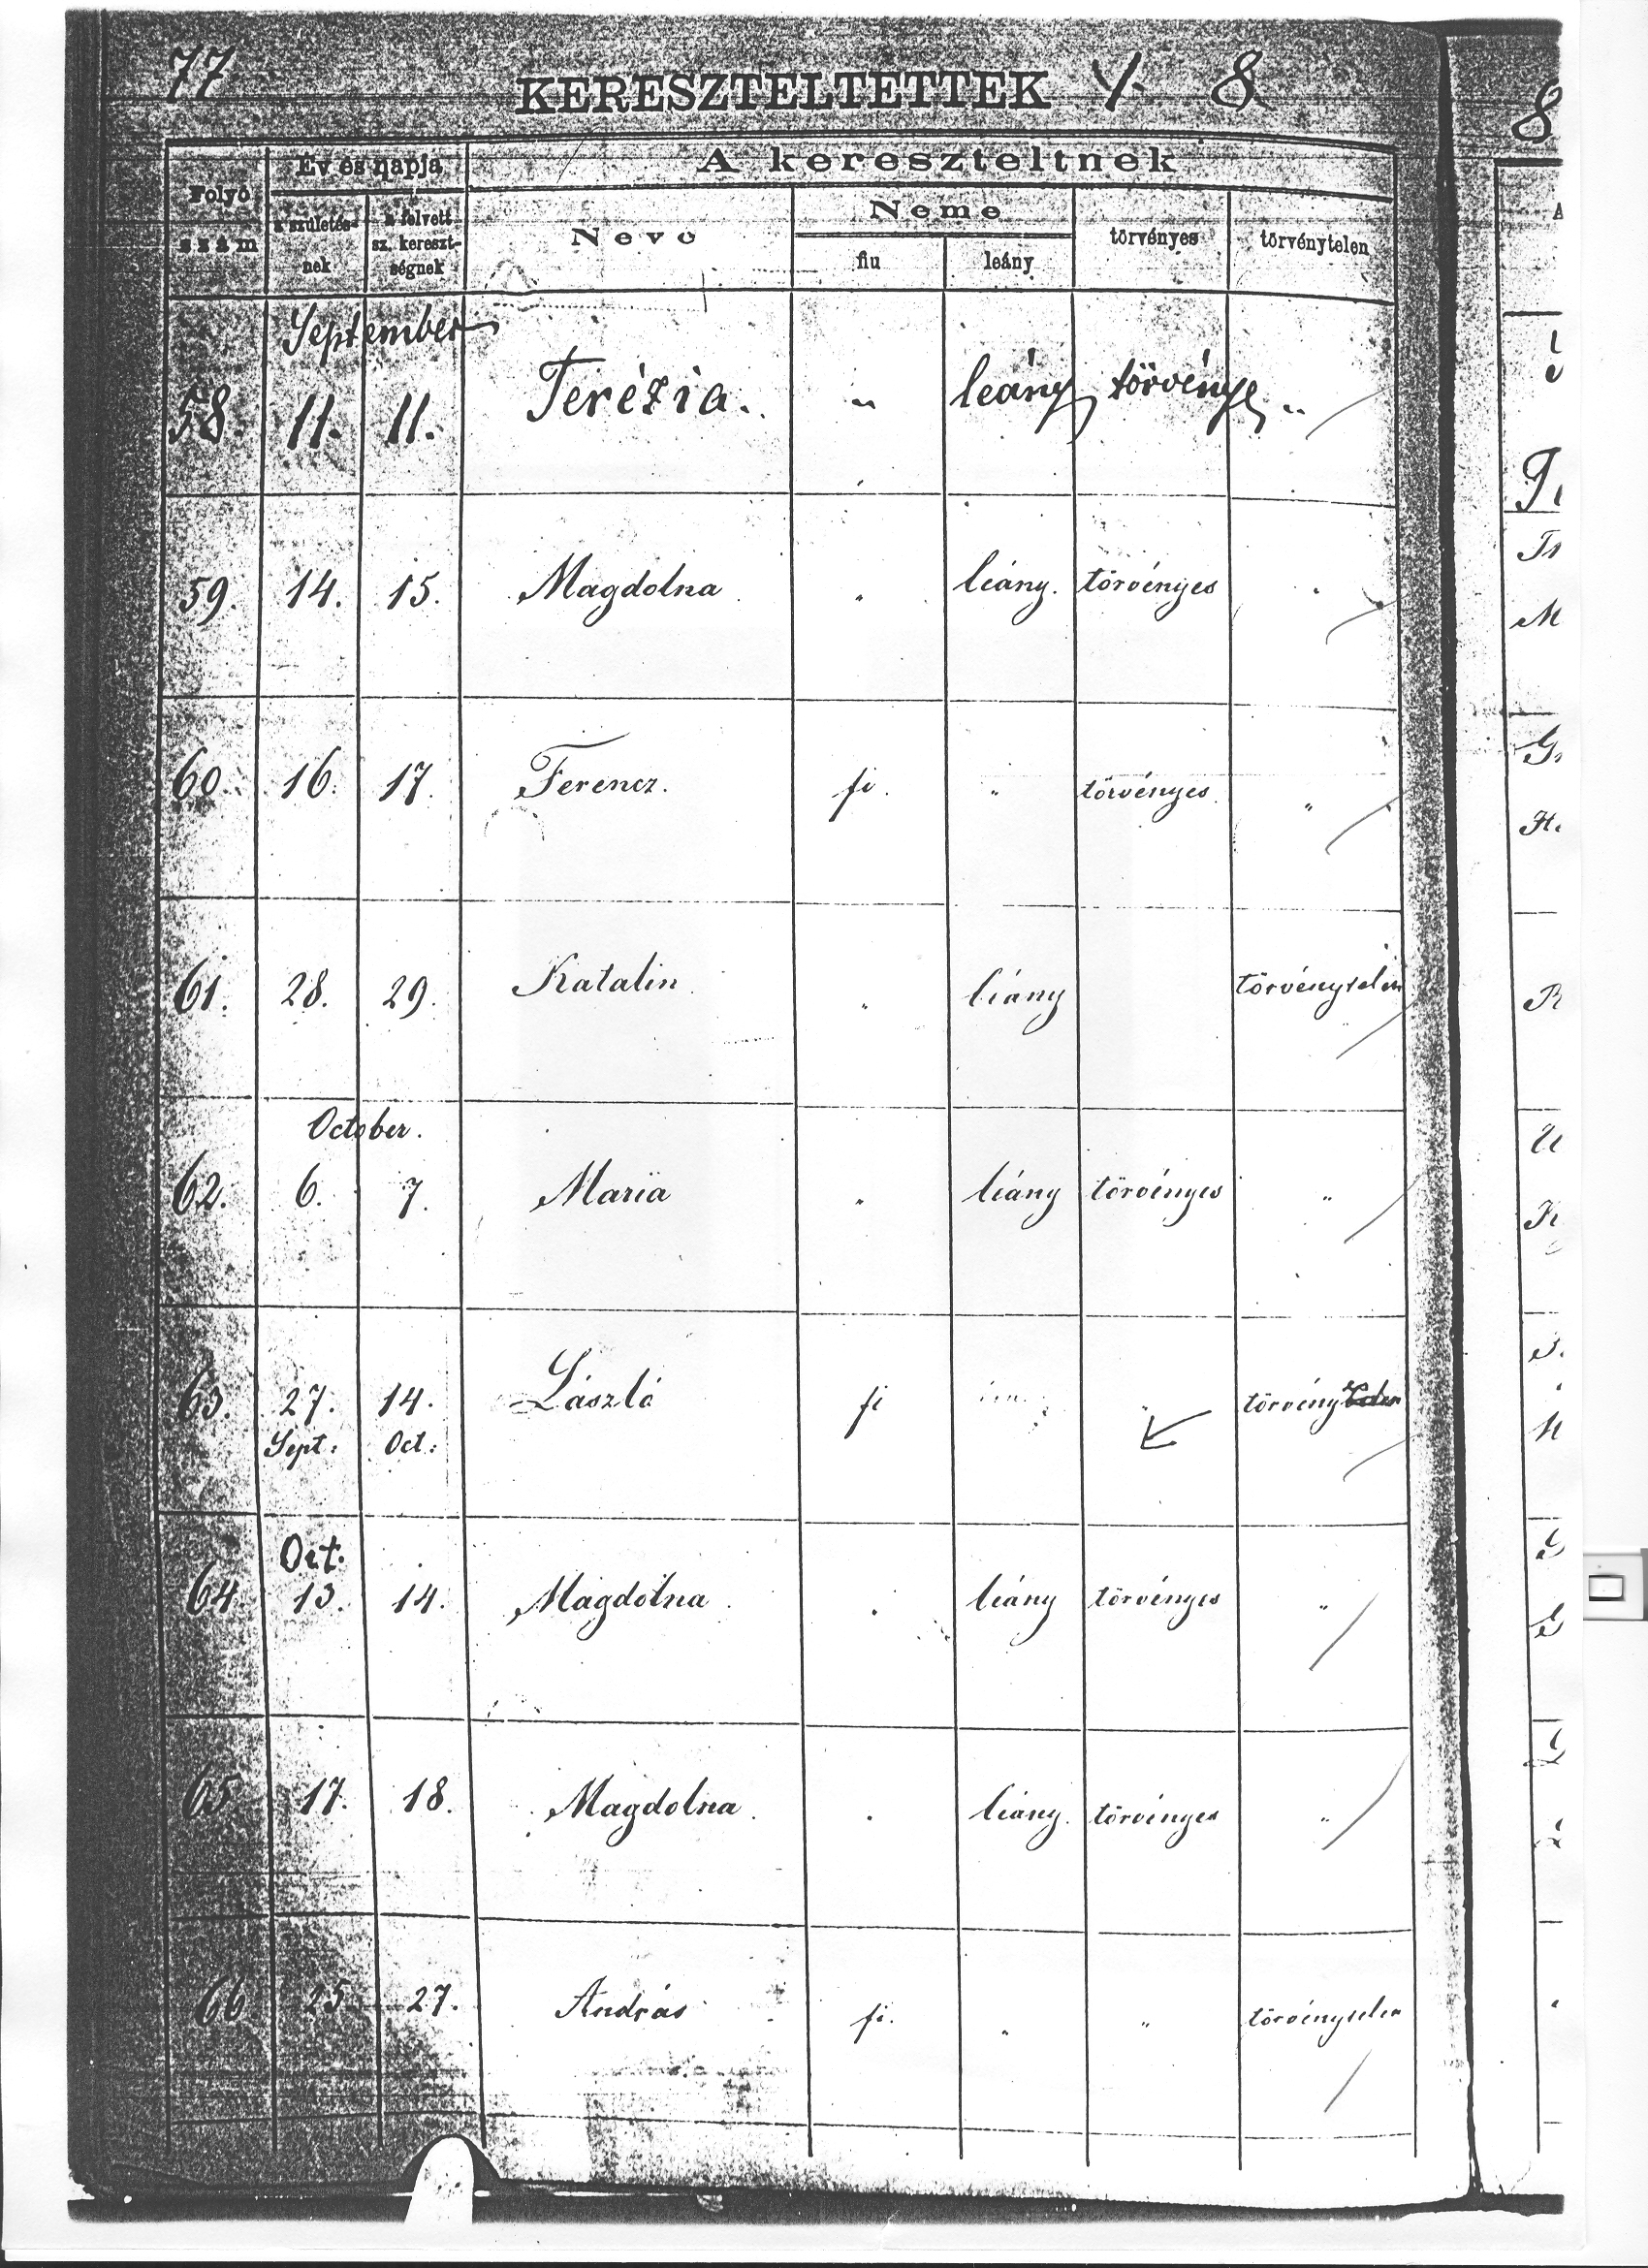 77 KERESZTELTETTEK 8
Folyó szám
Év és napja
a születésnek
a felvett sz. keresztségnek
A kereszteltnek
Neve
Neme
fiu
leány
törvényes
törvénytelen
September
58. 11. 11. Terézia. " leány törvényes "
59. 14. 15. Magdolna " leány. törvényes "
60. 16. 17. Ferencz. fi. " törvényes "
61. 28. 29. Katalin " leány törvénytelen
October.
62. 6. 7. Maria " leány törvényes "
63. 27. 14. László fi " törvény
Sept: Oct:
Oct.
64. 13. 14. Magdolna " leány törvényes "
65. 17. 18. Magdolna " leány. törvényes "
66 25 27. András fi. " " törvénytelen
8